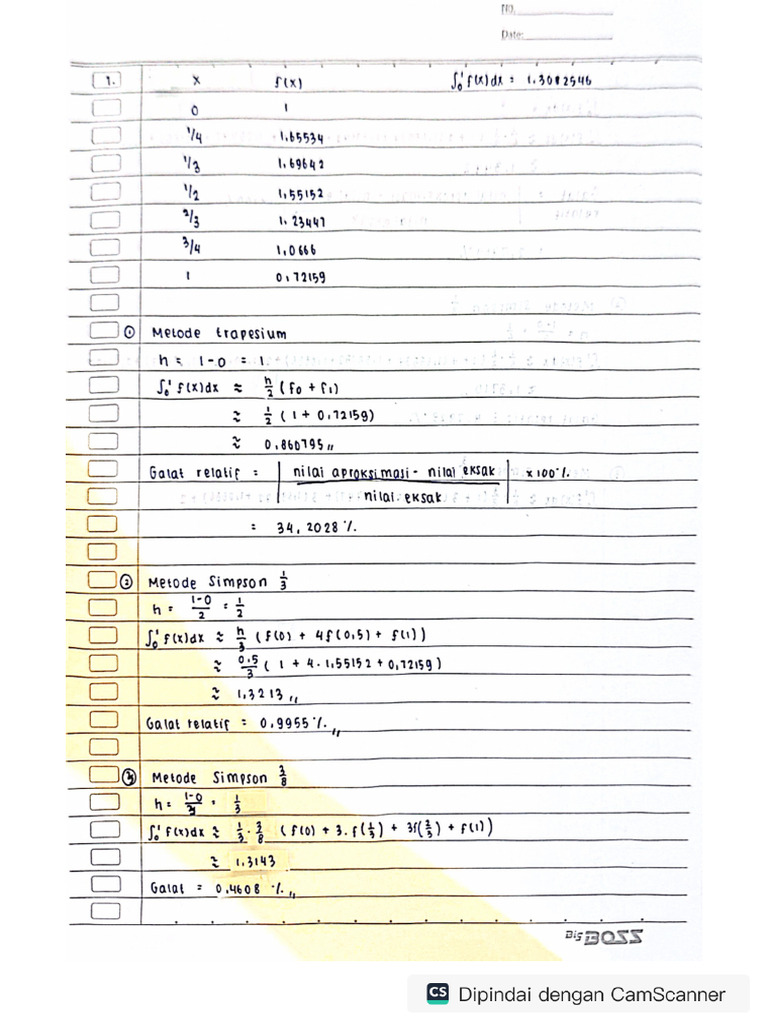 NO.
Date:
1. x f(x) ∫₀¹ f(x) dx = 1.3082546
0 1
1/4 1.65534
1/3 1.69642
1/2 1,55152
2/3 1.23447
3/4 1,0666
1 0.72159
① Metode trapesium
h = 1-0 = 1.
∫₀¹ f(x)dx ≈ h/2 (f0 + f1)
≈ 1/2 (1 + 0.72159)
≈ 0.860795,,
Galat relatif = | nilai aproksimasi - nilai eksak / nilai eksak | x 100%
= 34,2028 %.
② Metode Simpson 1/3
h = 1-0/2 = 1/2
∫₀¹ f(x)dx ≈ h/3 (f(0) + 4f(0,5) + f(1))
≈ 0.5/3 (1 + 4. 1,55152 + 0,72159)
≈ 1,3213,,
Galat relatif = 0,9955 %,,
③ Metode Simpson 3/8
h = 1-0/3 = 1/3
∫₀¹ f(x)dx ≈ 1/3 . 3/8 (f(0) + 3.f(1/3) + 3f(2/3) + f(1))
≈ 1.3143
Galat = 0,4608 %.,,
Big BOSS
CS Dipindai dengan CamScanner